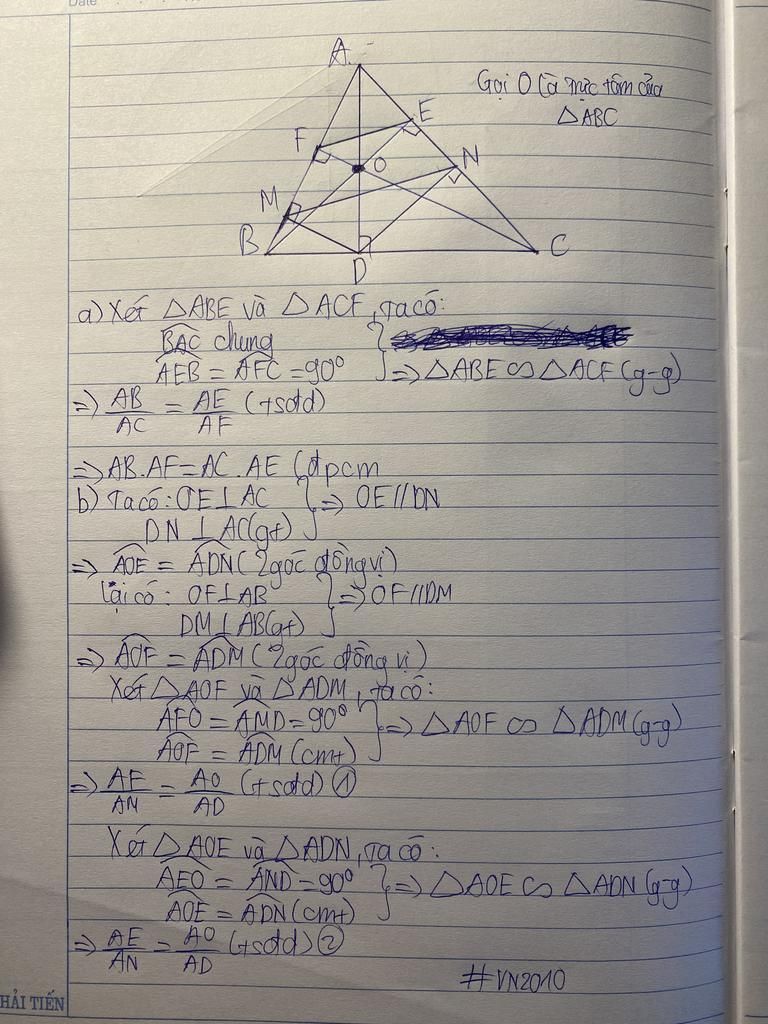 Date
A
Gọi O là trực tâm của
△ABC
E
F
O
N
M
B
D
C
a) Xét △ABE và △ACF, ta có:
BAC chung
AEB = AFC = 90° => △ABE ∽ △ACF (g-g)
=> AB/AC = AE/AF (tsđd)
=> AB.AF = AC.AE (đpcm
b) Ta có: OE ⊥ AC => OE // DN
DN ⊥ AC (gt)
=> AOE = ADN (2 góc đồng vị)
Lại có: OF ⊥ AB => OF // DM
DM ⊥ AB (gt)
=> AOF = ADM (2 góc đồng vị)
Xét △AOF và △ADM, ta có:
AFO = AMD = 90° => △AOF ∽ △ADM (g-g)
AOF = ADM (cmt)
=> AF/AM = AO/AD (tsđd) ①
Xét △AOE và △ADN, ta có:
AEO = AND = 90° => △AOE ∽ △ADN (g-g)
AOE = ADN (cmt)
=> AE/AN = AO/AD (tsđd) ②
#VN2010
HẢI TIẾN